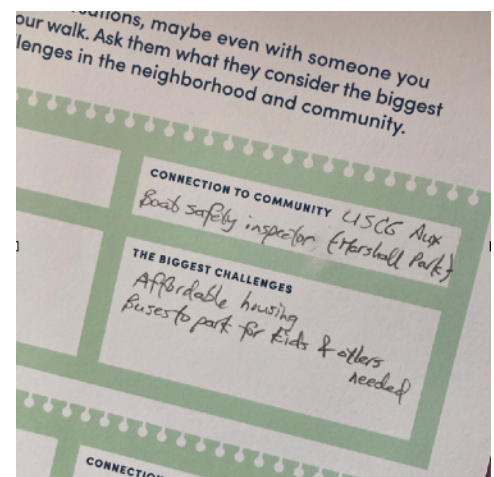 ations, maybe even with someone you
our walk. Ask them what they consider the biggest
lenges in the neighborhood and community.
CONNECTION TO COMMUNITY USCG Aux
Boat safety inspector (Marshall Park)
THE BIGGEST CHALLENGES
Affordable housing
Buses to park for kids & others
needed
CONNECTIO